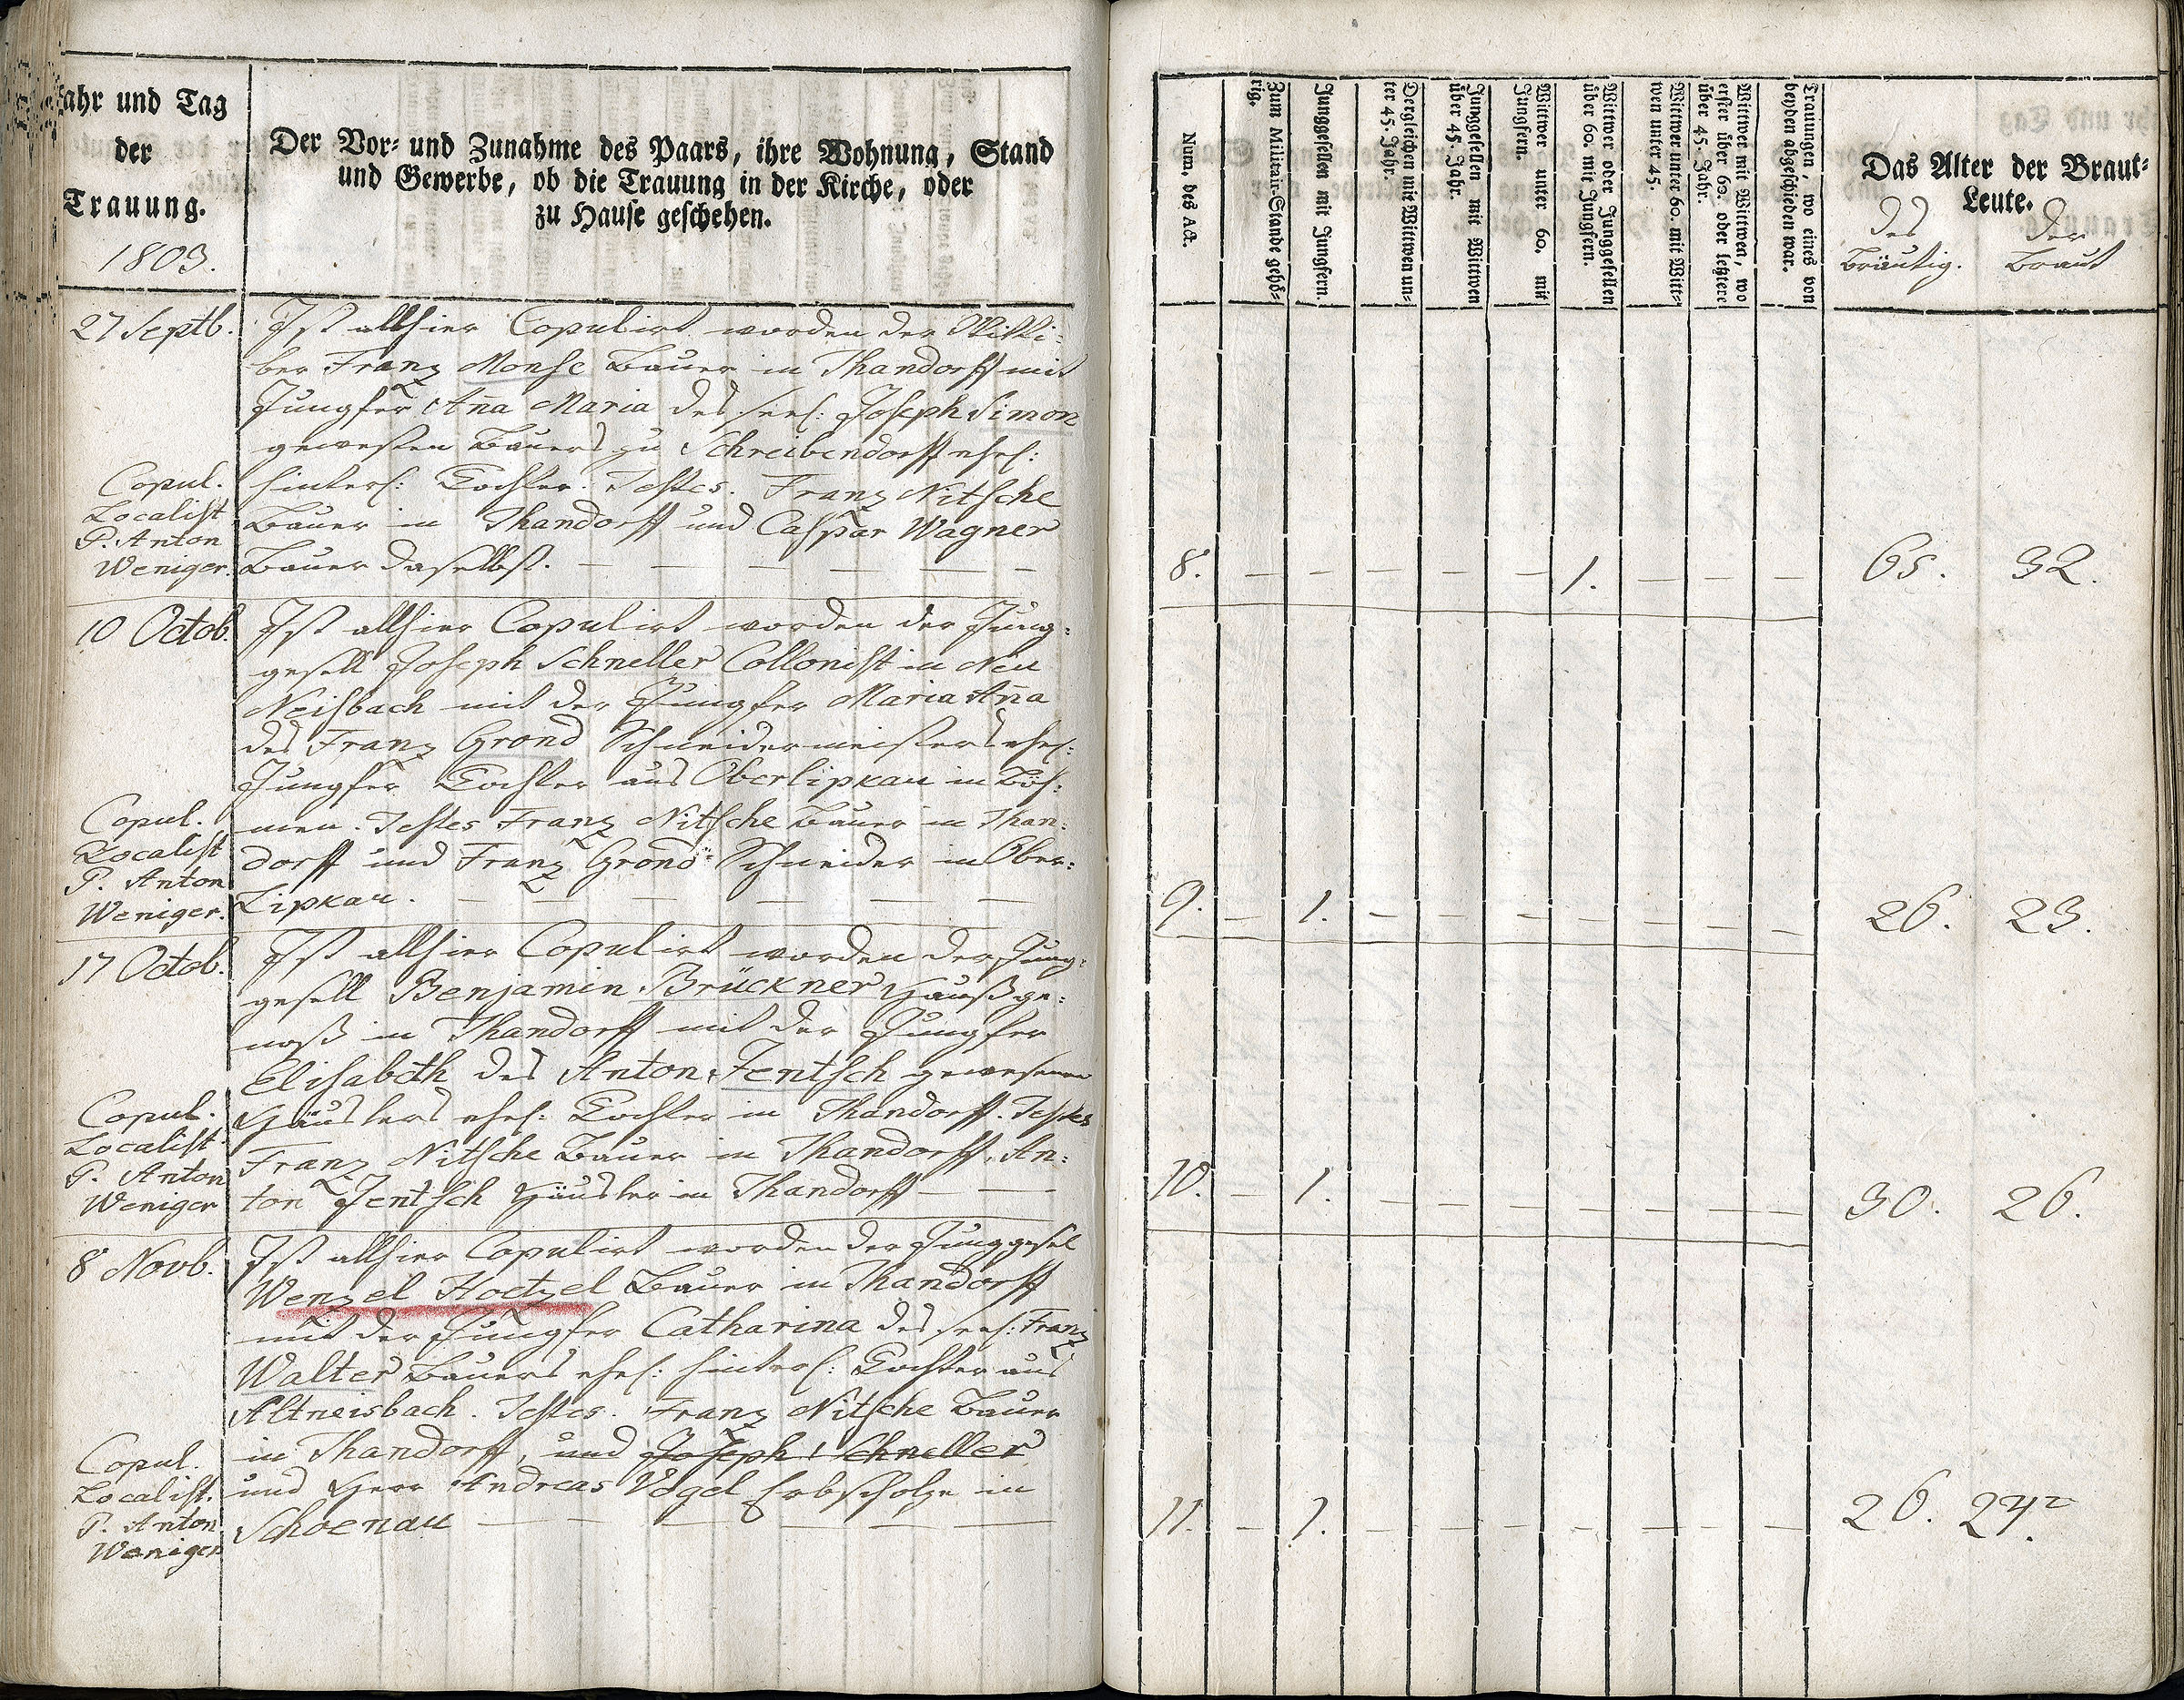 Jahr und Tag
der
Trauung.
1803.
Der Vor- und Zunahme des Paars, ihre Wohnung, Stand
und Gewerbe, ob die Trauung in der Kirche, oder
zu Hause geschehen.
27 Septb.
Ist allhier Copulirt worden der Witti-
ber Franz Monse Bauer in Thandorff mit
Jungfer Aña Maria des seel: Joseph Simon
gewesten Bauers zu Schreibendorff ehel:
hinterl: Tochter. Testes. Franz Nitsche
Bauer in Thandorff und Caspar Wagner
Bauer daselbst. — — — — —
Copul.
Localist
P. Anton
Weniger.
10 Octob.
Ist allhier Copulirt worden der Jung-
gesell Joseph Schneller Collonist in Neu
Neisbach mit der Jungfer Maria Aña
des Franz Grond Schneidermeisters ehel:
Jungfer Tochter aus Oberlipkau in Böh-
men. Testes Franz Nitsche Bauer in Than-
dorff und Franz Grond Schneider in Ober-
Lipkau. — — — — — —
Copul.
Localist
P. Anton
Weniger.
17 Octob.
Ist allhier Copulirt worden der Jung-
gesell Benjamin Brückner Haußge-
noß in Thandorff mit der Jungfer
Elisabeth des Anton Jentsch gewesenen
Häuslers ehel: Tochter in Thandorff. Testes
Franz Nitsche Bauer in Thandorff, An-
ton Jentsch Häusler in Thandorff — —
Copul.
Localist
P. Anton
Weniger
8 Novb.
Ist allhier Copulirt worden der Junggesel
Wenzel Hoetzel Bauer in Thandorff
mit der Jungfer Catharina des seel: Franz
Walter Bauers ehel: hinterl: Tochter aus
Altneisbach. Testes. Franz Nitsche Bauer
in Thandorff, und Joseph Schneller
und Herr Andreas Vogel Erbscholze in
Schoenau — — — — — —
Copul.
Localist.
P. Anton
Weniger
Num. des Act.
Zum Militair-Stande gehö-
rig.
Junggesellen mit Jungfern.
Dergleichen mit Wittwen un-
ter 45. Jahr.
Junggesellen mit Wittwen
über 45. Jahr.
Wittwer unter 60. mit
Jungfern.
Wittwer oder Junggesellen
über 60. mit Jungfern.
Wittwer unter 60. mit Witt-
wen unter 45.
Wittwer mit Wittwen, wo
erster über 60. oder letztere
über 45. Jahr.
Trauungen, wo eines von
beyden abgeschieden war.
Das Alter der Braut-
Leute.
des
Bräutig.
der
Braut
8. — — — — — 1. — — — 65. 32.
9. — 1. — — — — — — — 26. 23.
10. — 1. — — — — — — — 30. 26.
11. — 1. — — — — — — — 26. 24